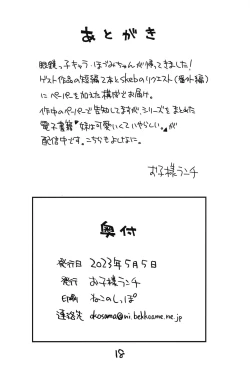 あとがき
眼鏡っ子キャラ・ほづみちゃんが帰ってきました!
ゲスト作品の短編2本とskebのリクエスト(番外編)
にペーパーを加えた構成でお届け。
作中のペーパーで告知してますが、シリーズをまとめた
電子書籍『妹は可愛くていやらしい。』が
配信中です。こちらもよしなに。
お子様ランチ
奥付
発行日 2023年5月5日
発行 お子様ランチ
印刷 ねこのしっぽ
連絡先 okosama@ni.bekkoame.ne.jp
18